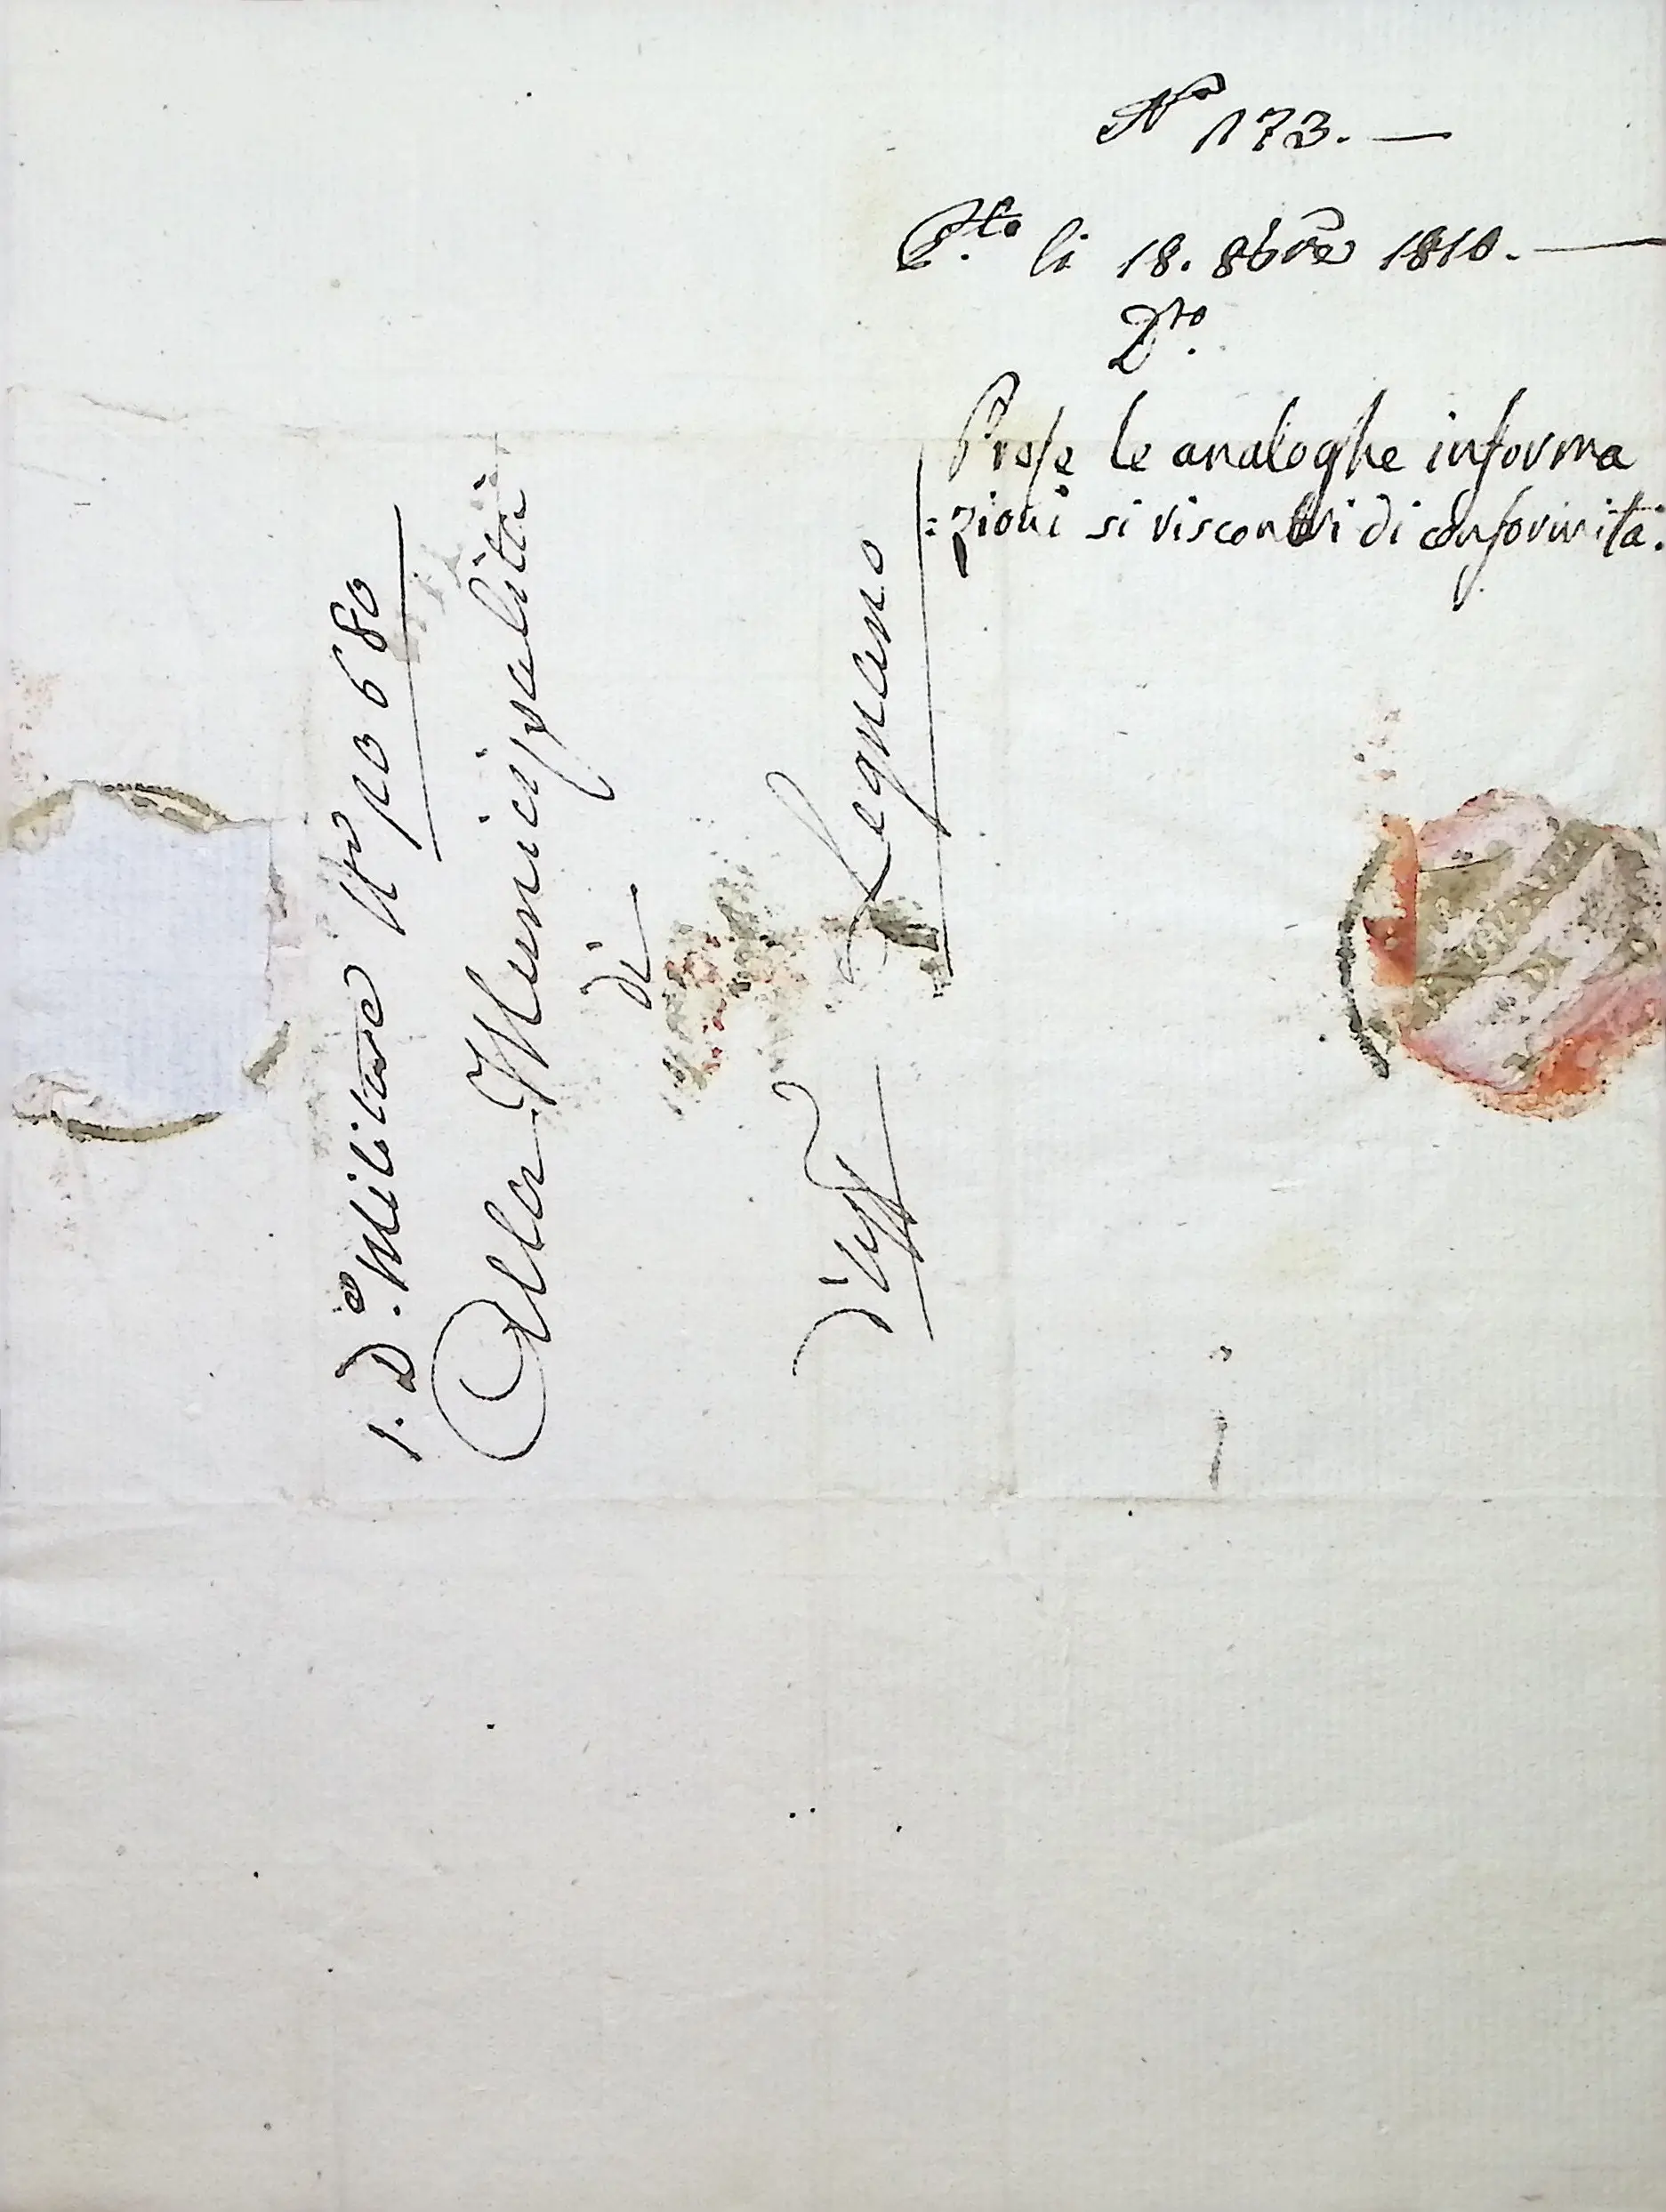 Nº 173. —
P.to li 18. 8bre 1810. —
D.to
Prese le analoghe informa
=zioni si riscontri di conformità.
1. D.e Militare Nº 10680
Alla Municipalità
di
d'Uff.º Legnano